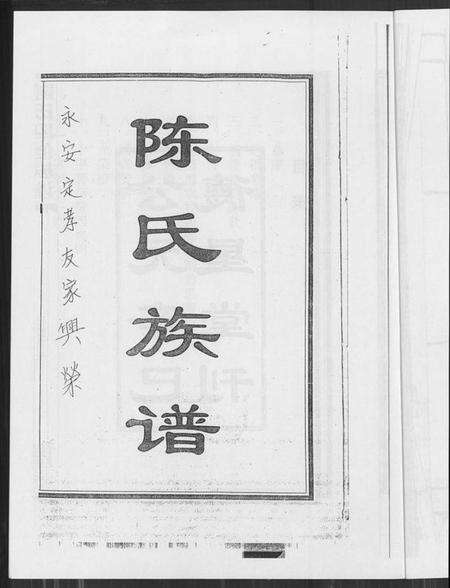 陈氏族谱
永安定孝友家興榮